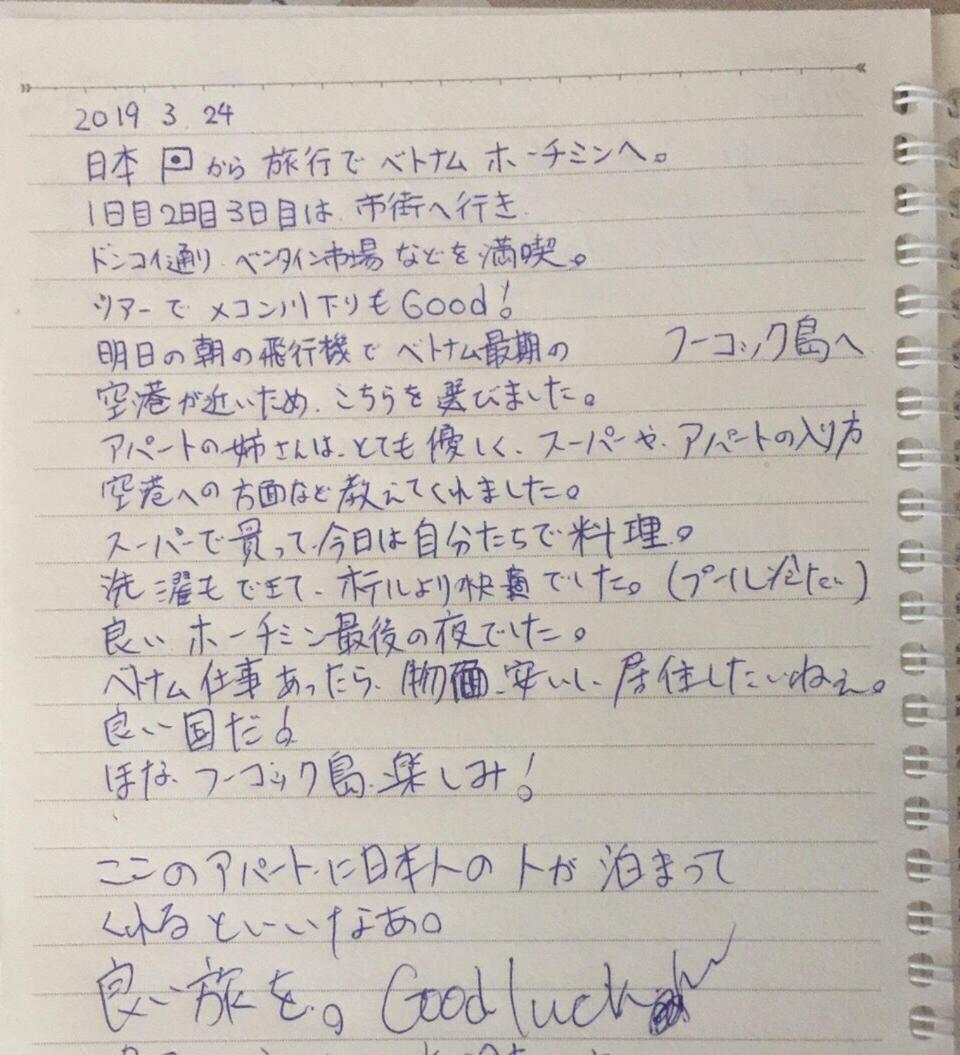 2019 3. 24
日本 から 旅行で ベトナム ホーチミンへ。
1日目2日目3日目は、市街へ行き
ドンコイ通り、ベンタイン市場などを満喫。
ツアーで メコン川下りもGood!
明日の朝の飛行機で ベトナム最期の フーコック島へ
空港が近いため、こちらを選びました。
アパートの姉さんは、とても優しく、スーパーや、アパートの入り方
空港への方面など教えてくれました。
スーパーで買って、今日は自分たちで料理。
洗濯もできて、ホテルより快適でした。(プール冷たい)
良いホーチミン最後の夜でした。
ベトナム仕事あったら、物価安いし、居住したいねぇ。
良い国だ!
ほな、フーコック島、楽しみ!
ここのアパートに日本人の人が泊まって
くれるといいなあ。
良い旅を。Good luck